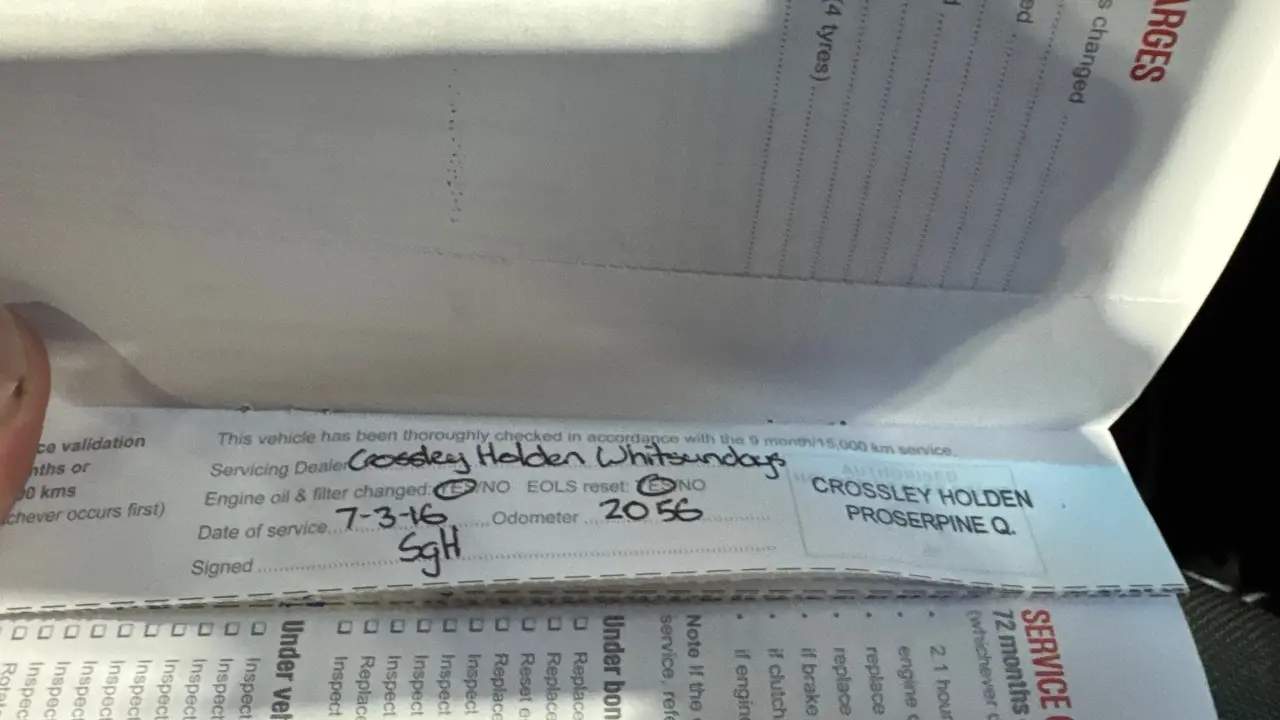 ARGES
s changed
ed
(4 tyres)
ce validation
nths or
00 kms
chever occurs first)
This vehicle has been thoroughly checked in accordance with the 9 month/15,000 km service.
Servicing Dealer Crossley Holden Whitsundays
Engine oil & filter changed: YES/NO EOLS reset: YES/NO
Date of service 7-3-16 Odometer 2056
Signed SgH
AUTHORISED
CROSSLEY HOLDEN
PROSERPINE Q.
SERVICE
72 months
(whichever
• 2.1 hour
• engine
• replace
• replace
• if brake
• if clutch
• if engin
Note If the
service, refe
Under bon
Replace
Replace
Reset e
Replace
Inspect
Inspect
Inspect
Replace
Inspect
Under veh
Inspect
Inspect
Inspect
Inspec
Inspec
Inspec
Inspec
Inspec
Inspec
Rotat